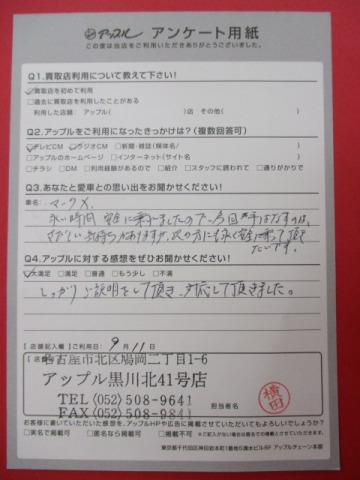 アップル アンケート用紙
この度は当店をご利用いただきありがとうございました。
Q1.買取店利用について教えて下さい!
☑買取店を初めて利用
□過去に買取店を利用したことがある
利用した店舗: アップル( )店 その他( )
Q2.アップルをご利用になったきっかけは?(複数回答可)
☑テレビCM ☑ラジオCM □新聞・雑誌(媒体名/ )
□アップルのホームページ □インターネット(サイト名 )
□チラシ □DM □利用経験があるので □紹介 □スタッフに誘われて □通りがかりで
Q3.あなたと愛車との思い出をお聞かせください!
車名: マークX
永い時間 安全に乗りましたので今回手ばなすのは、
さびしい気持ちがありますが、次の方にも永く安全に乗って頂き
たいです。
Q4.アップルに対する感想をぜひお聞かせください!
☑大満足 □満足 □普通 □もう少し □不満
しっかりご説明をして頂き、対応して頂きました。
【店舗記入欄】ご利用日: 9月11日
【店舗
名古屋市北区鳩岡二丁目1-6
アップル黒川北41号店
TEL (052) 508-9641
FAX (052) 508-9841
担当者名
横田
お客様に書いていただいた感想を、アップルHPや広告に掲載させていただいてもよろしいでしょうか?
□実名で掲載可 □匿名なら掲載可 □掲載不可
※ご記入がない場合は匿名での掲載とさせていただきます。